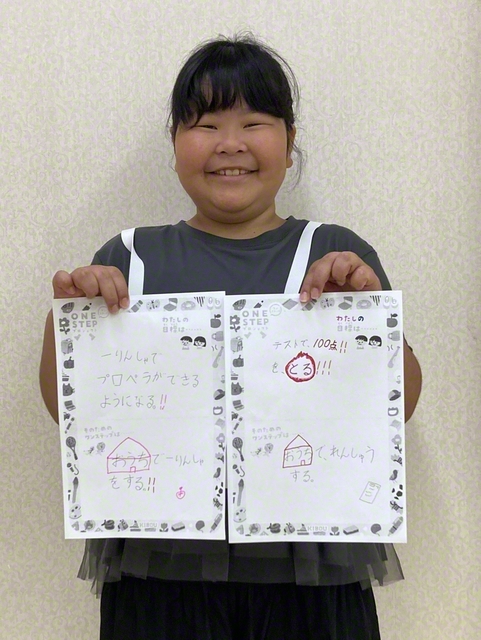 ONE
STEP
わたしの
目標は……
一りんしゃで
プロペラができる
ようになる!!
そのための
ワンステップは
おうちで一りんしゃ
をする。!!
KIBOU
ONE
STEP
わたしの
目標は……
テストで、100点!!
を、とる!!!
そのための
ワンステップは
おうちで、れんしゅう
する。